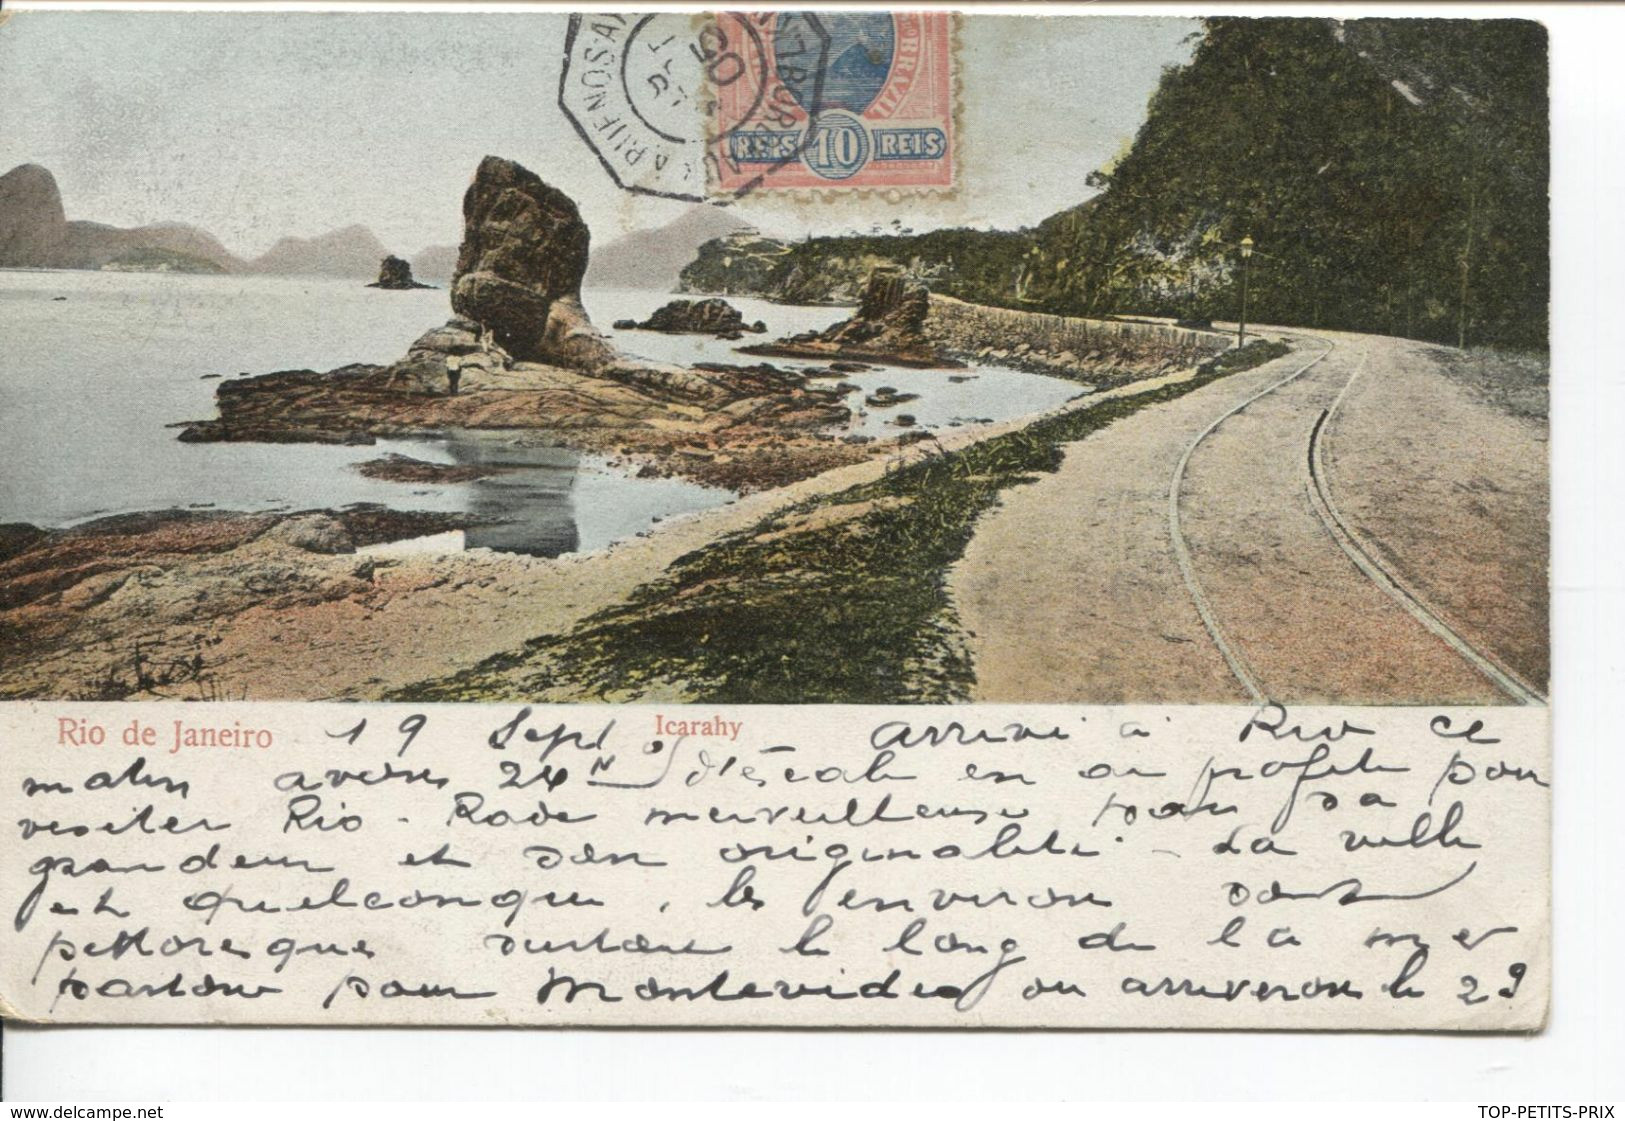 BRAZIL
REIS 10 REIS
05
Rio de Janeiro
Icarahy
19 Sept Arrivé à Rio ce
matin avons 24 H d'escale en ai profité pour
visiter Rio - Rade merveilleuse par sa
grandeur et son originalité - La ville
est quelconque, les environs sont
pittoresques surtout le long de la mer
partons pour Montevideo ou arriverons le 23
www.delcampe.net
TOP-PETITS-PRIX